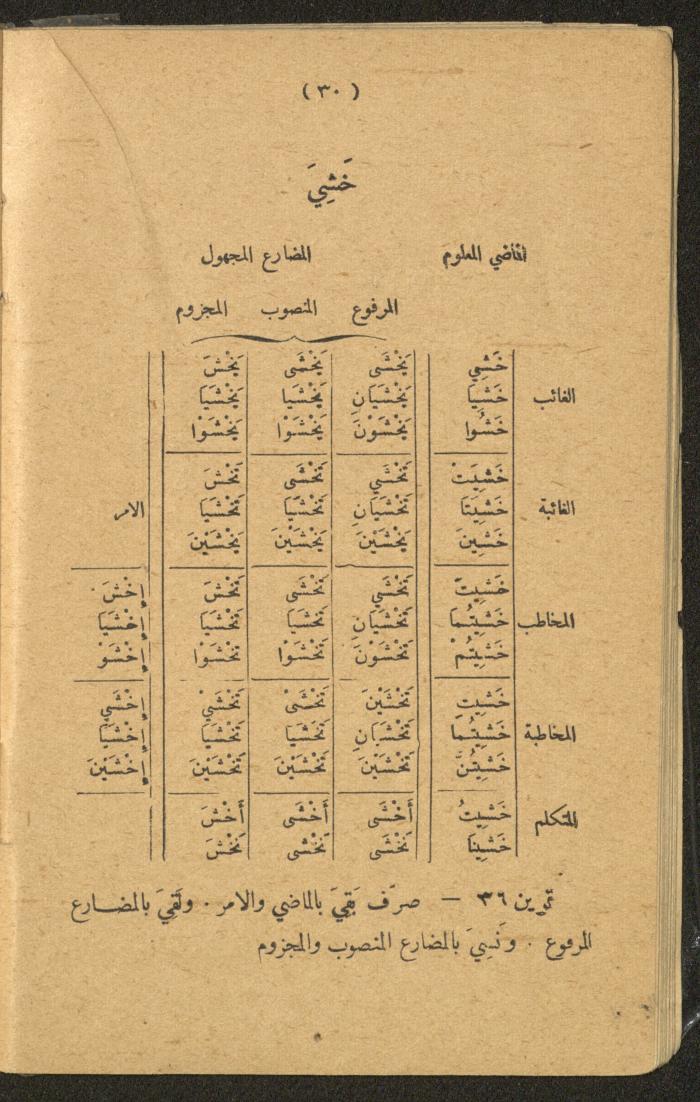 ( ٣٠ )
خَشِيَ
الماضي المعلوم المضارع المجهول
المرفوع المنصوب المجزوم
الغائب خَشِي يَخْشَى يَخْشَى يَخْشَ
خَشِيَا يَخْشَيَانِ يَخْشَيَا يَخْشَيَا
خَشُوا يَخْشَوْنَ يَخْشَوْا يَخْشَوْا
خَشِيَتْ تَخْشَي تَخْشَى تَخْشَ
الغائبة خَشِيَتَا تَخْشَيَانِ تَخْشَيَا تَخْشَيَا الامر
خَشِينَ يَخْشَيْنَ يَخْشَيْنَ يَخْشَيْنَ
خَشِيتَ تَخْشَي تَخْشَى تَخْشَ إِخْشَ
المخاطب خَشِيتُمَا تَخْشَيَانِ تَخْشَيَا تَخْشَيَا إِخْشَيَا
خَشِيتُمْ تَخْشَوْنَ تَخْشَوْا تَخْشَوْا إِخْشَوْ
خَشِيتِ تَخْشَيْنَ تَخْشَىْ تَخْشَيْ إِخْشَي
المخاطبة خَشِيتُمَا تَخْشَيَانِ تَخْشَيَا تَخْشَيَا إِخْشَيَا
خَشِيتُنَّ تَخْشَيْنَ تَخْشَيْنَ تَخْشَيْنَ إِخْشَيْنَ
المتكلم خَشِيتُ أَخْشَى أَخْشَى أَخْشَ
خَشِينَا نَخْشَى نَخْشَى نَخْشَ
تمرين ٣٦ — صرّف بَقِيَ بالماضي والامر . ولَقِيَ بالمضارع
المرفوع . ونَسِيَ بالمضارع المنصوب والمجزوم